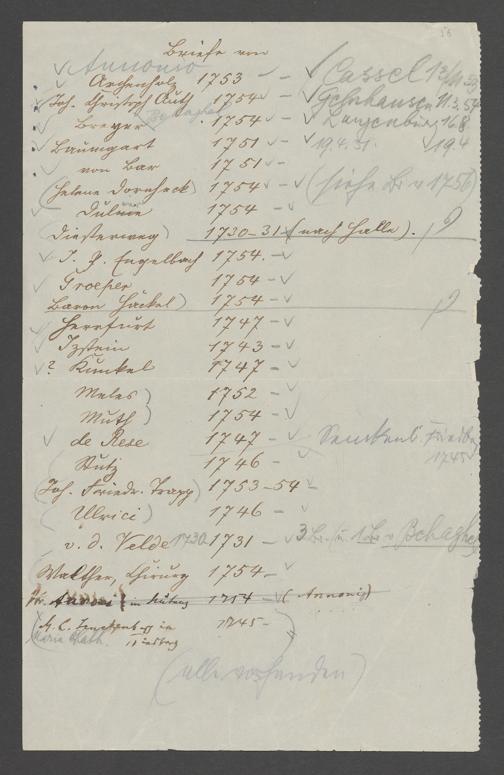 Briefe von
Annonio
Archenholz 1753 - - Cassel
Joh. Christoph Auth 1754 - Gelnhausen 11.3.54
Breyer 1754 - Langenburg
Baumgart 1751 - 19.4.31. 19.4
von Bar 1751 -
(Helene Dornheck) 1754 - (siehe Br. v 1756)
Dulme 1754 -
Diesterweg) 1730-31 (nach Halle). ?
J. G. Engelbach 1754. -
Groeser 1754 -
Baron Häckel) 1754 - ?
Herrfurt 1747 -
Izstein 1743 -
? Kunkel 1747 -
Meles) 1752 -
Muth) 1754 -
de Rese 1747 - Senkenb.
1745
Stutz 1746 -
(Joh. Friedr. Trapp) 1753-54 -
(Ulrici) 1746 -
v. d. Velde 1730 1731 - 3 Br. u. 1 Br v
(Walther, Chirurg 1754 -
in 1754 - (Annoni)
1745 -
Maria Kath.
(alle vorhanden)